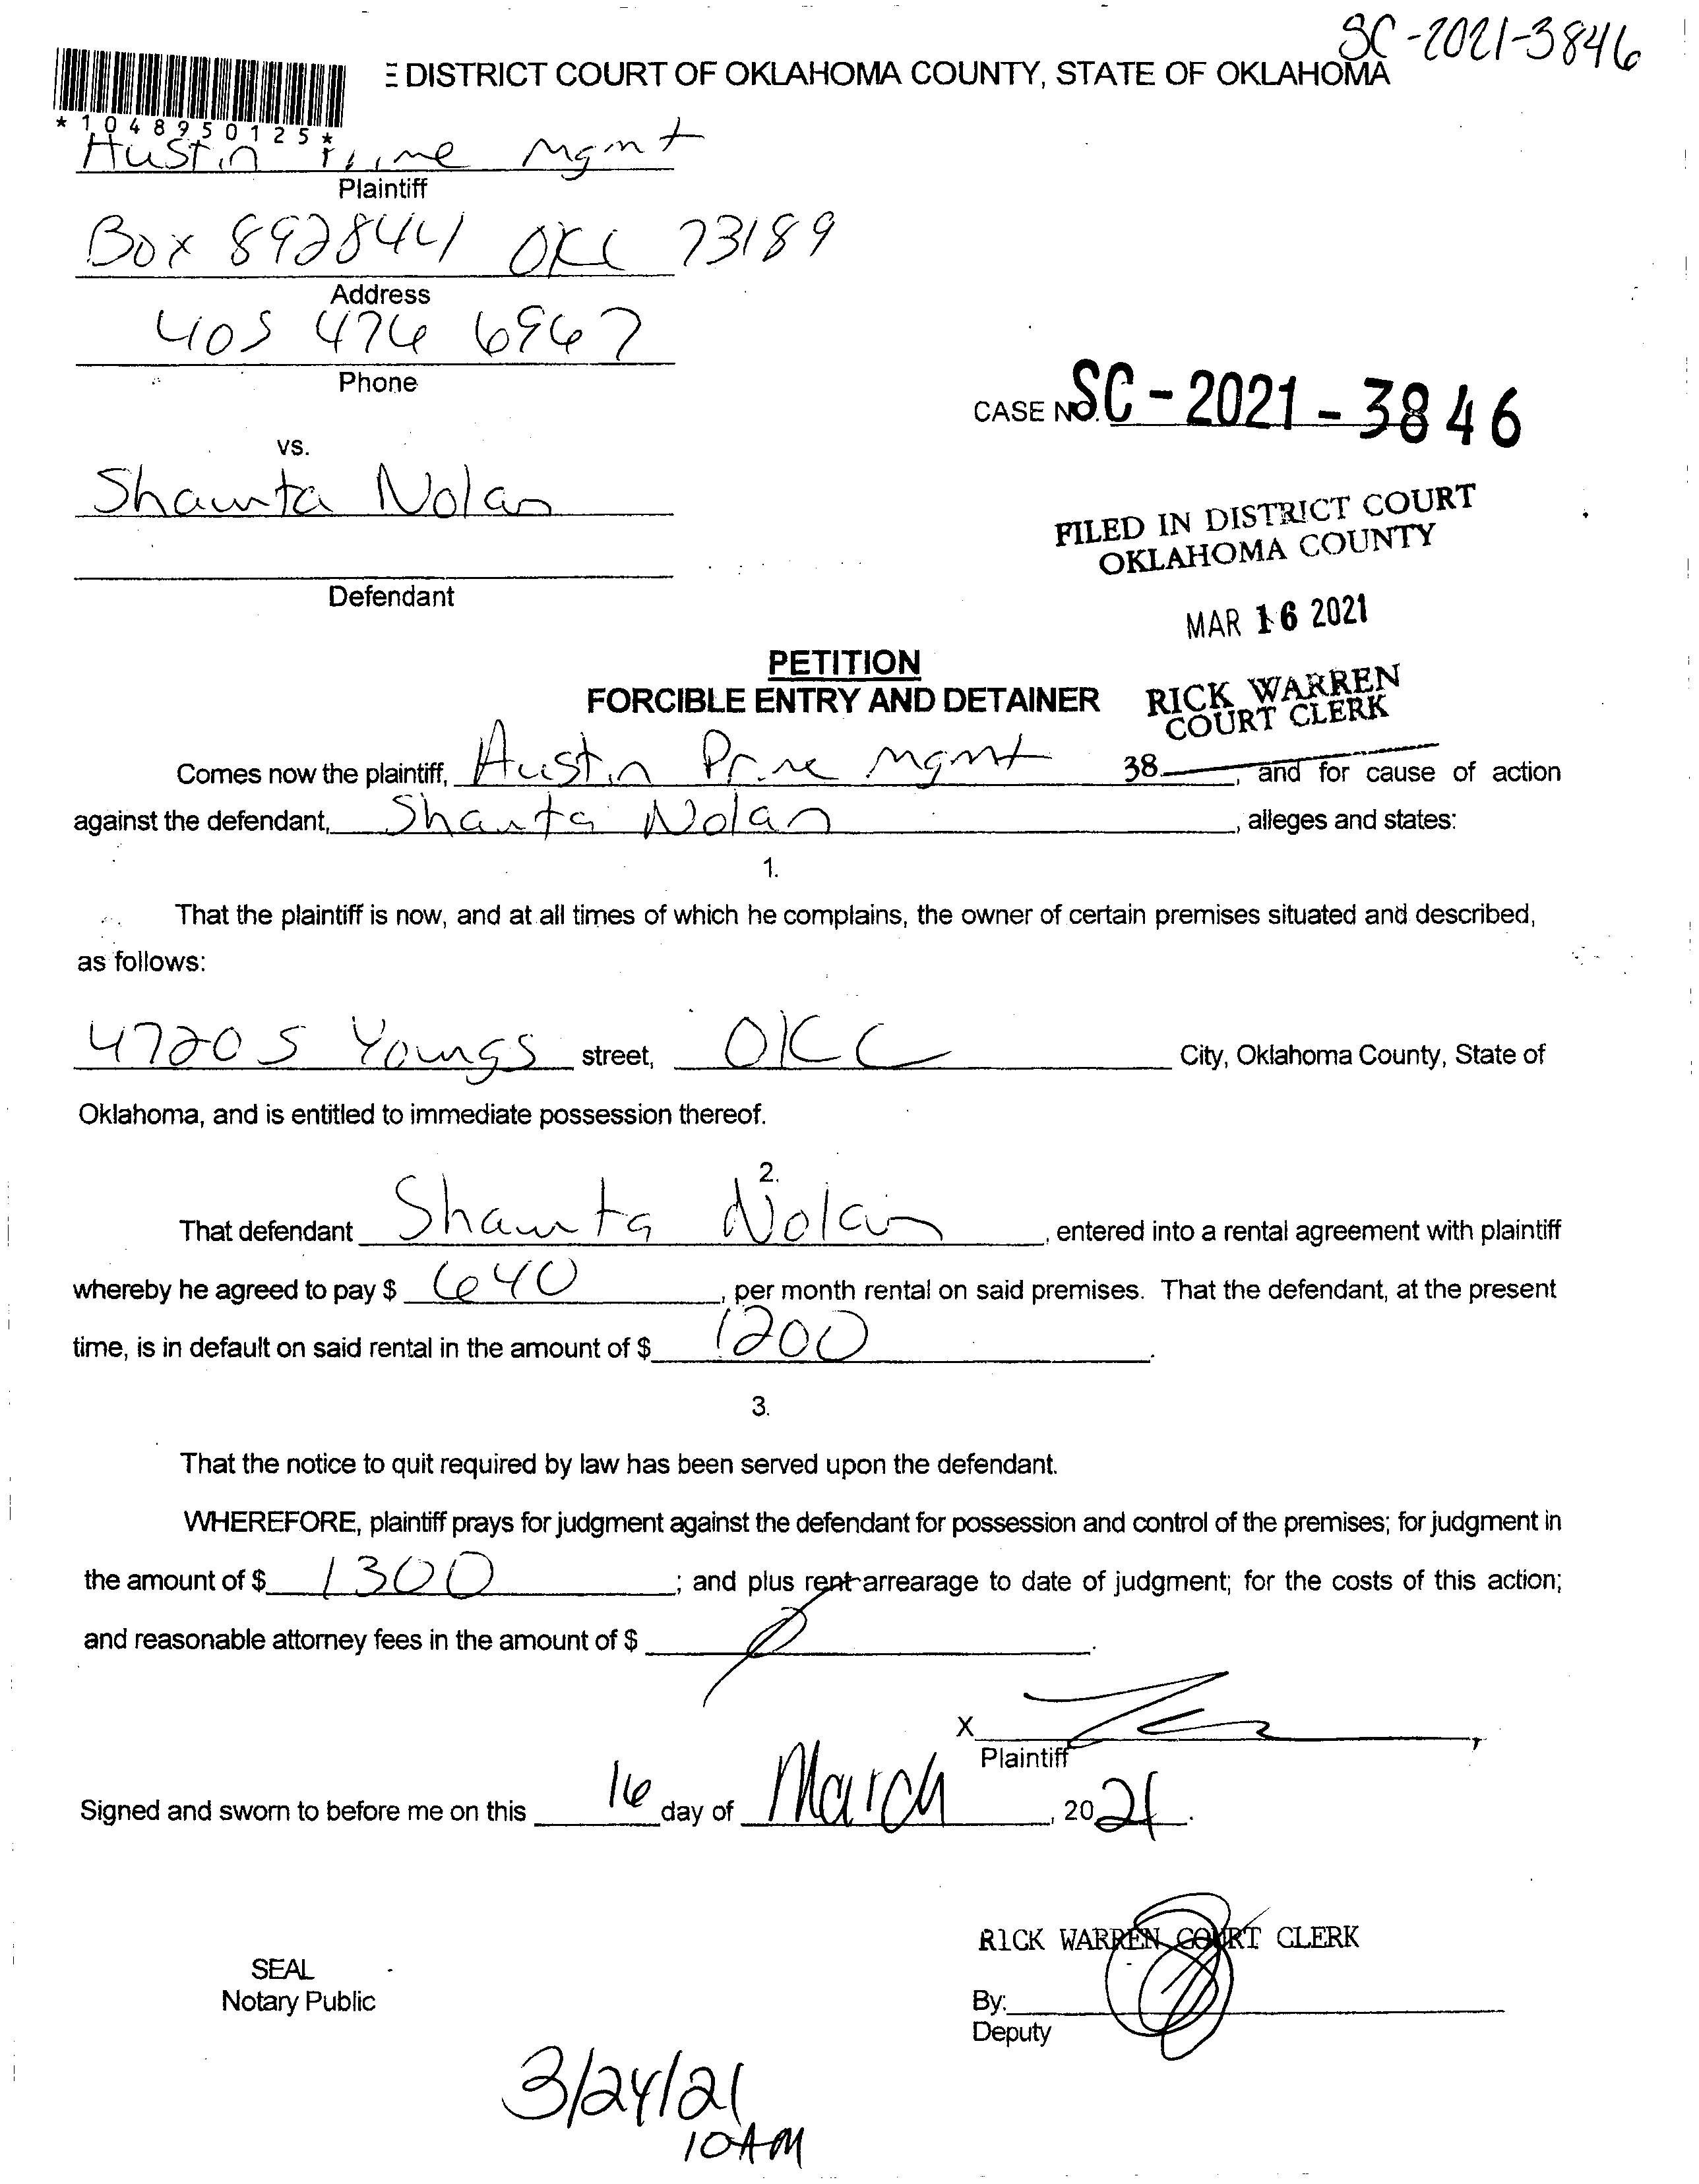 SC-2021-3846
DISTRICT COURT OF OKLAHOMA COUNTY, STATE OF OKLAHOMA
*1048950125*
Austin Prime Mgmt
Plaintiff
Box 892844 OKC 73189
Address
405 476 6967
Phone
CASE NO. SC-2021-3846
vs.
Shaunta Nolan
FILED IN DISTRICT COURT
OKLAHOMA COUNTY
Defendant
MAR 16 2021
PETITION
FORCIBLE ENTRY AND DETAINER
RICK WARREN
COURT CLERK
38
Comes now the plaintiff, Austin Prime Mgmt, and for cause of action
against the defendant, Shaunta Nolan, alleges and states:
1.
That the plaintiff is now, and at all times of which he complains, the owner of certain premises situated and described,
as follows:
4720 S Youngs street, OKC City, Oklahoma County, State of
Oklahoma, and is entitled to immediate possession thereof.
2.
That defendant Shaunta Nolan, entered into a rental agreement with plaintiff
whereby he agreed to pay $ 640, per month rental on said premises. That the defendant, at the present
time, is in default on said rental in the amount of $ 1200.
3.
That the notice to quit required by law has been served upon the defendant.
WHEREFORE, plaintiff prays for judgment against the defendant for possession and control of the premises; for judgment in
the amount of $ 1300; and plus rent arrearage to date of judgment; for the costs of this action;
and reasonable attorney fees in the amount of $ .
X
Plaintiff
Signed and sworn to before me on this 16 day of March, 2021.
RICK WARREN COURT CLERK
SEAL
Notary Public
By:
Deputy
3/24/21
10AM